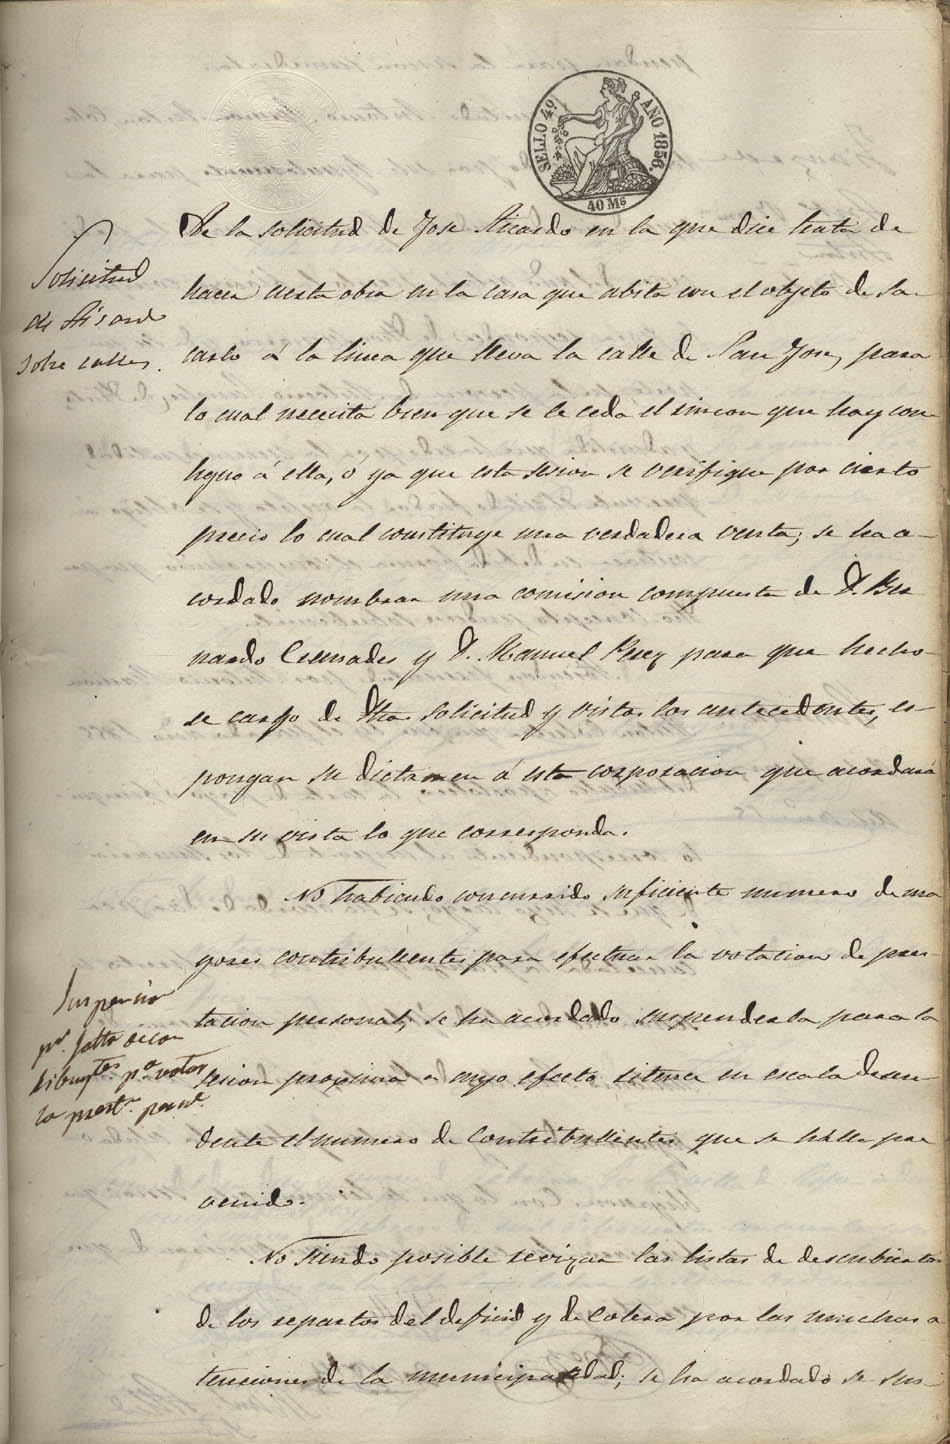 SELLO 4º AÑO 1856.
40 Ms
De la solicitud de Jose Sicardo en la que dice trata de
hacer cierta obra en la casa que abita con el objeto de sa-
carlo á la linea que lleva la calle de San Jose, para
lo cual necesita bien que se le ceda el rincon que hay con
tiguo á ella, ó ya que esta sesion se verifique por cierto
precio lo cual constituye una verdadera venta; se ha a-
cordado nombrar una comision compuesta de D. Ber
nardo Cremades y D. Manuel Perez para que hecho
se cargo de dha. solicitud y vistos los antecedentes, es-
pongan su dictamen á esta corporacion que acordará
en su vista lo que corresponda.
Solicitud
de Sicardo
sobre calles.
No habiendo concurrido suficiente numero de ma
yores contribullentes para efectuar la votacion de pres-
tacion personal, se ha acordado suspenderla para la
sesion proxima a cuyo efecto sitense en escala desen-
dente el numero de contribullentes que se halla pre
venido.
Suspension
pr. falta de con
tribuytes pa votar
la prestn. persnl.
No siendo posible revizar las listas de descubiertos
de los repartos del deficid y de Colera por las muchas a
tenciones de la municipalidad; se ha acordado se sus-